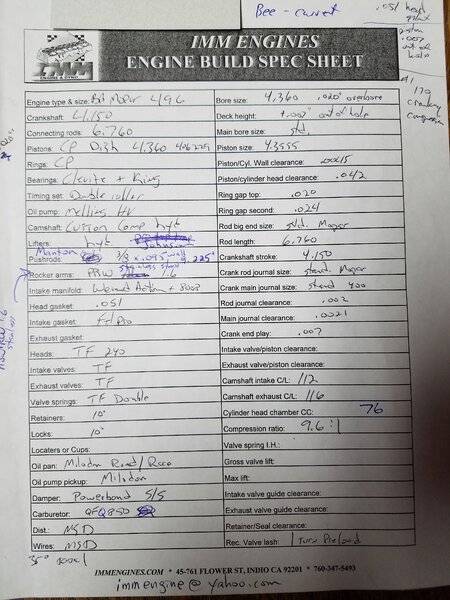 Bee - cuvet
.051 head
IMM ENGINES
ENGINE BUILD SPEC SHEET
IMM
Engine type & size: Mopar 496
Bore size: 4.360 .020" overbore
Crankshaft: 4.150
Deck height: +.002" out of hole
Connecting rods: 6.760
Main bore size: std.
Pistons: CP Dish 4.360
Piston size: 4.3555
Rings: CP
Piston/Cyl. Wall clearance:
Bearings: Clevite + King
Piston/cylinder head clearance: .042
Timing set: Double roller
Ring gap top: .020
Oil pump: Melling HV
Ring gap second: .024
Camshaft: Custom Comp hyt
Rod big end size: std. Mopar
Lifters: hyt
Rod length: 6.760
Manton
Pushrods: 3/8 x .095 wall
Crankshaft stroke: 4.150
Rocker arms: PRW stainless steel
Crank rod journal size: stand. Mopar
Intake manifold:
Crank main journal size: stand 400
Head gasket: .051
Rod journal clearance: .002
Intake gasket: Fel Pro
Main journal clearance: .0021
Exhaust gasket:
Crank end play: .007
Heads: TF 240
Intake valve/piston clearance:
Intake valves: TF
Exhaust valve/piston clearance:
Exhaust valves: TF
Camshaft intake C/L: 112
Valve springs: TF Double
Camshaft exhaust C/L: 116
Retainers: 10°
Cylinder head chamber CC: 76
Locks: 10°
Compression ratio: 9.6:1
Locaters or Cups:
Valve spring I.H.:
Oil pan: Milodon Road/Race
Gross valve lift:
Oil pump pickup: Milodon
Max lift:
Damper: Powerbond S/S
Intake valve guide clearance:
Carburetor: QFQ850
Exhaust valve guide clearance:
Dist.: MSD
Retainer/Seal clearance:
Wires: MSD
Rec. Valve lash: 1 Turn Preload
IMMENGINES.COM * 45-761 FLOWER ST, INDIO CA 92201 * 760-347-5493
immengine@yahoo.com